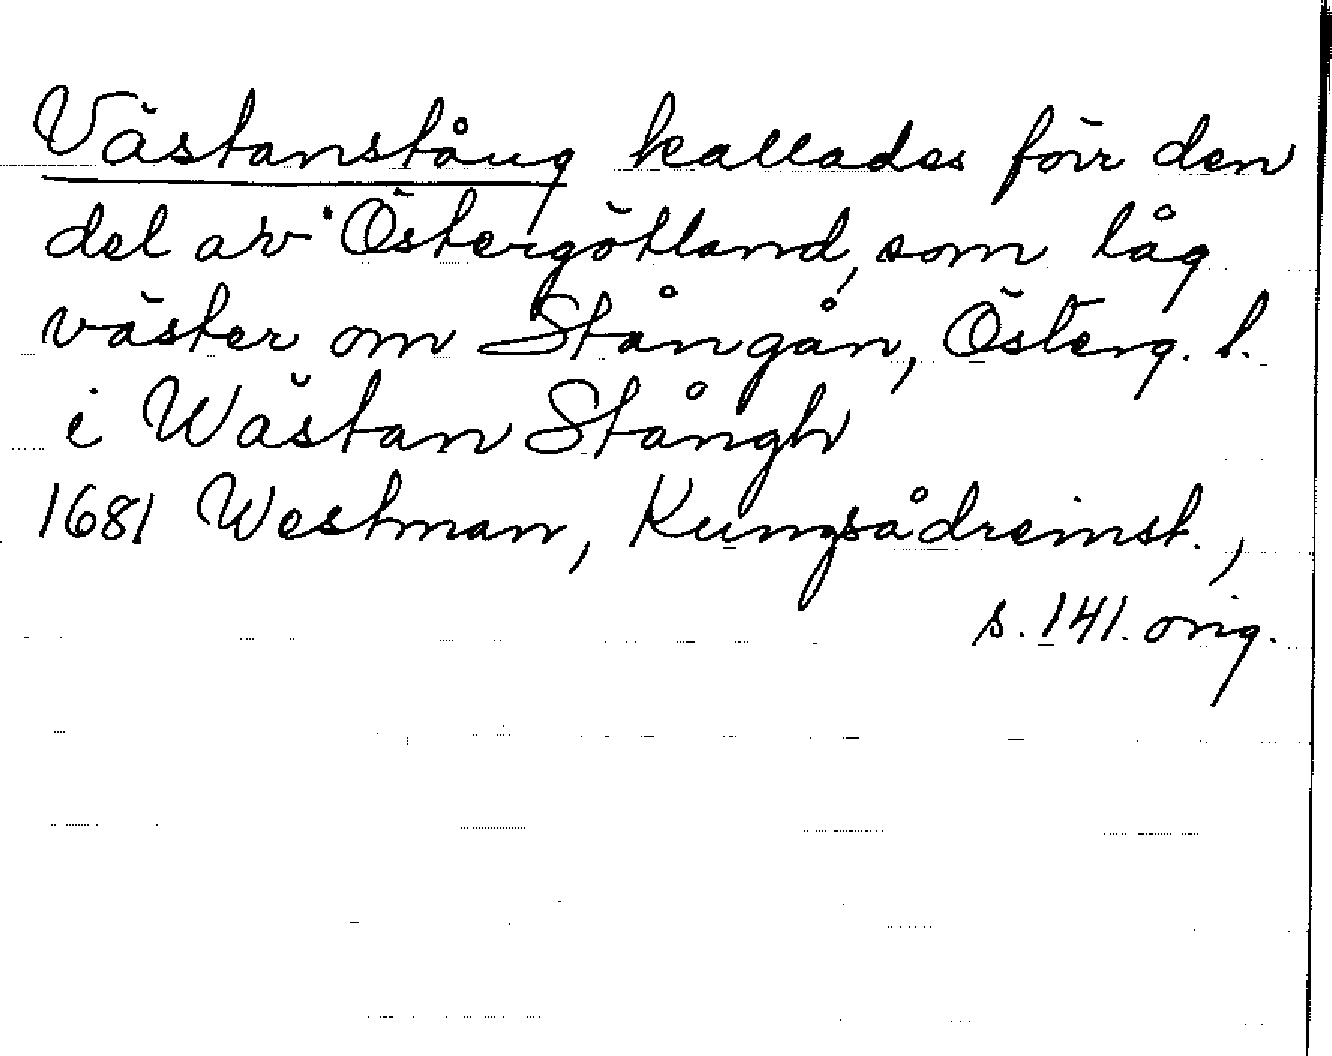 Västanstång kallades förr den
del av Östergötland, som låg
väster om Stångån, Österg. l.
i Wästan Stångh
1681 Westman, Kungsådreinst.,
s. 141. orig.